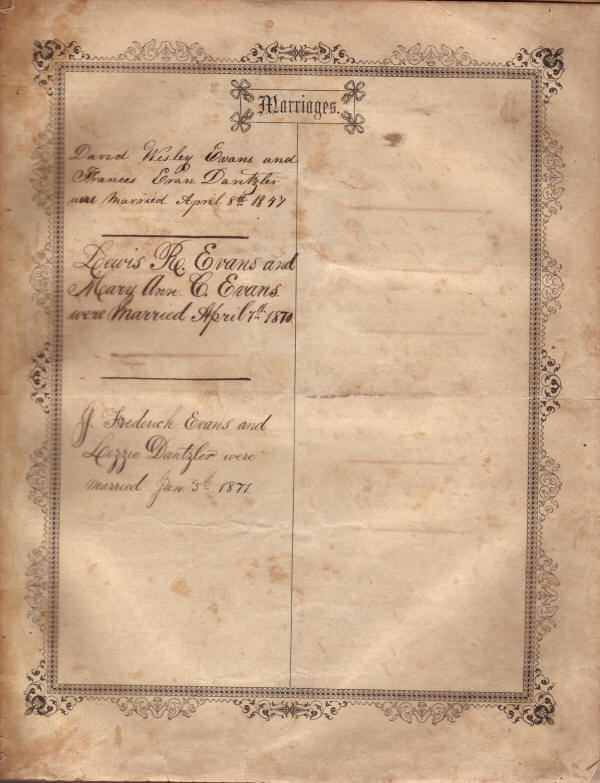 Marriages.
David Wesley Evans and
Frances Evan Dantzler
were Married April 8th 1847
Lewis R. Evans and
Mary Ann C. Evans.
were Married April 7th 1870.
J. Frederick Evans and
Lizzie Dantzler were
married Jan. 5th 1871.